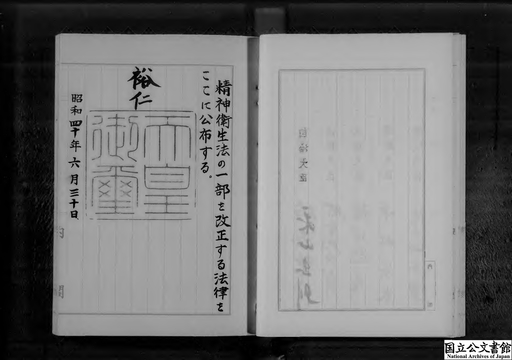 精神衛生法の一部を改正する法律を
ここに公布する。
裕仁
天皇
御璽
昭和四十年六月三十日
国立公文書館
National Archives of Japan